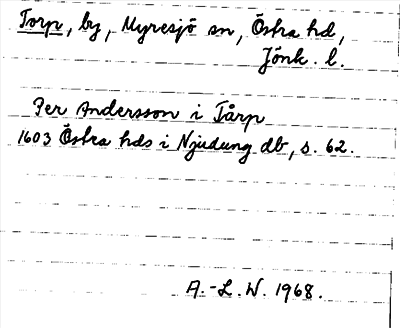 Torp, by, Myresjö sn, Östra hd,
Jönk. l.
Per Andersson i Tårp
1603 Östra hds i Njudung db, s. 62.
A.-L. W. 1968.